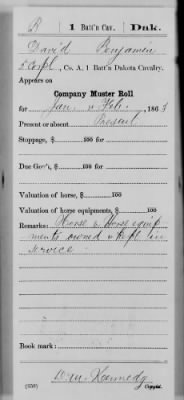 D | 1 Batt'n Cav. | Dak.
David Benjamin
5 Corpl, Co. A, 1 Batt'n Dakota Cavalry.
Appears on
Company Muster Roll
for Jan. & Feb., 1863
Present or absent Present
Stoppage, $ 100 for
Due Gov't, $ 100 for
Valuation of horse, $ 100
Valuation of horse equipments, $ 100
Remarks: Horse & Horse equip
ments owned & kept in
service
Book mark:
Wm. Kennedy
(358) Copyist.